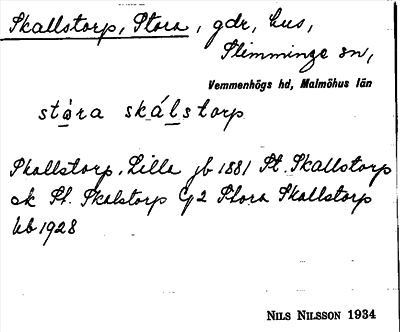 Skallstorp, Stora, gdr, hus,
Slimminge sn,
Vemmenhögs hd, Malmöhus län
stọ̄ra skálstorp
Skallstorp, Lilla jb 1881 St. Skallstorp
ek St. Skalstorp G2 Stora Skallstorp
kb 1928
NILS NILSSON 1934